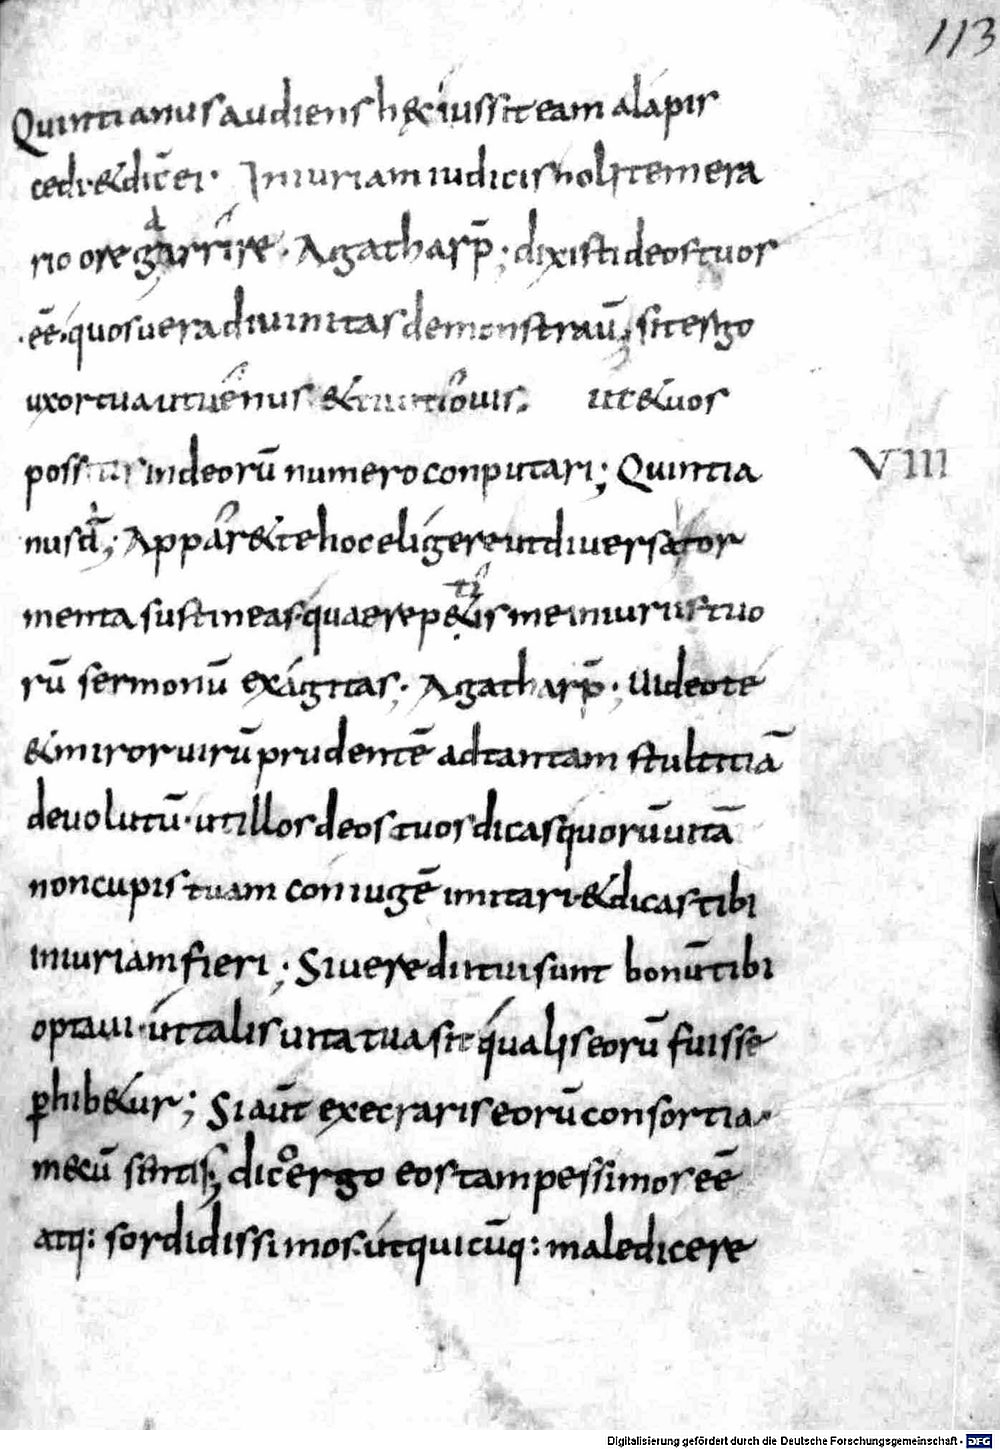 113
Quintianus audiens h&c iussit eam alapis
cedi·& dic̄ ei· Iniuriam iudicis noli temera
rio ore garrire· Agatha rsp̄; dixisti deos tuos
·eē· quos uera diuinitas demonstrau̅; sit ergo
uxor tua ut uenus & tu ut iouis. ut & uos
possitis in deorū numero conputari; Quintia
VIII
nus d̄; Appar& te hoc eligere ut diuersa tor
menta sustineas· quae rep&is me iniuriis tuo
rū sermonū exágitas; Agatha rsp̄; Uideo te
& miror uirū prudentē ad tantam stultitiā
deuolutū· ut illos deos tuos dicas quorū uitā
non cupis tuam coniugē imitari· & dicas tibi
iniuriam fieri; Si uere dii tui sunt bonū tibi
optaui· út talis uita tua sit qualis eorū fuisse
p̱hib&ur; Si aūt execraris eorū consortia·
mecū sentis; dic ergo eos tam pessimos eē
atq: sordidissimos· út quicūq: maledicere
Digitalisierung gefördert durch die Deutsche Forschungsgemeinschaft - DFG